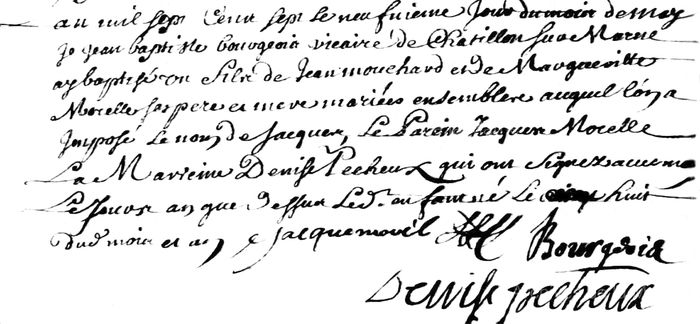 an mil sept cent sept le neufvieme jour du mois de may
Je jean baptiste bourgeois vicaire de Chatillon sur Marne
ay baptisé un fils de Jean mouchard et de Margueritte
Morelle ses pere et mere mariées ensemble auquel lon a
Imposé le nom de Jacques, Le Parein Jacques Morelle
La Mareine Denise Pecheux qui ont signez avec
Le Jour et an que dessus Led. enfant né le huit
dud mois et an Jacque morel Bourgeois
Denise pecheux